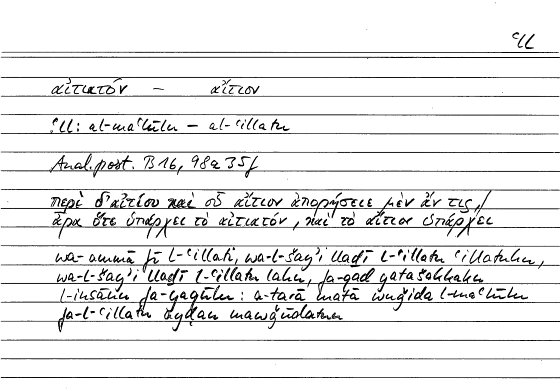 ʿll
αἰτιατόν – αἴτιον
ʿll: al-maʿlūlu – al-ʿillatu
Anal. post. B 16, 98a 35 f
περὶ δ' αἰτίου καὶ οὗ αἴτιον ἀπορήσειε μὲν ἄν τις, /
ἆρα ὅτε ὑπάρχει τὸ αἰτιατόν, καὶ τὸ αἴτιον ὑπάρχει
wa-ammā fī l-ʿillati, wa-l-šayʾi lladī l-ʿillatu ʿillatuhu,
wa-l-šayʾi lladī l-ʿillatu lahu, fa-qad yatašakkaku
l-insānu fa-yaqūlu: a-tarā matā wuǧida l-maʿlūlu
fa-l-ʿillatu ayḍan mawǧūdatun